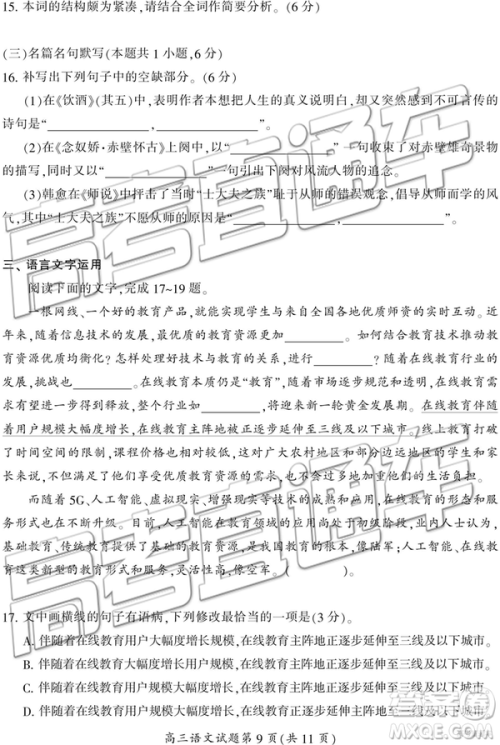 15. 本词的结构颇为紧凑,请结合全词作简要分析。(6 分)
(三)名篇名句默写(本题共 1 小题,6 分)
16. 补写出下列句子中的空缺部分。(6 分)
(1)在《饮酒》(其五)中,表明作者本想把人生的真义说出来,却又突然感到不可言传的
诗句是“____________,____________”。
(2)在《念奴娇·赤壁怀古》上阕中,以“____________”一句收束了对赤壁雄奇景物
的描写,同时又以“____________”一句引出下阕对风流人物的追念。
(3)韩愈在《师说》中抨击了当时“士大夫之族”耻于从师的错误观念,倡导从师而学的风
气,其中“士大夫之族”不愿从师的原因是“____________,____________”。
三、语言文字运用
阅读下面的文字,完成 17~19 题。
一根网线、一个好的教育产品,就能实现学生与来自全国各地优质师资的实时互动。近
年来,随着信息技术的发展,最优质的教育资源____________。如何结合教育技术推动教
育资源优质均衡化?怎样处理好技术与教育的关系,进行____________?随着在线教育行业的
发展,挑战也____________。在线教育本质仍是“教育”,随着市场逐步成熟和透明,在线教育
需求有望进一步得到释放,整个行业如____________,将迎来新一轮黄金发展期。在线教育伴随
着用户规模大幅度增长,在线教育主阵地正逐步延伸至三线及以下城市,线上教育打破
了时间空间的限制,课程价格也相对较低,这对广大农村地区和部分边远地区的学生和家
长来说,不失为性价比很高的享受优质教育资源的一个渠道。
而随着 5G、人工智能、虚拟现实、增强现实等技术的成熟和应用,在线教育的形态和服
务形式也在不断升级。目前,人工智能在教育领域的应用尚处于初级阶段,业内人士认为:
基础教育、传统教育提供了最基本的教育资源,是根本,像陆军;人工智能教育、在线教育
这类新型的教育形式和服务,灵活性高,像空军。(      )。
17. 文中画横线的句子有语病,下列修改最恰当的一项是(3 分)
A. 伴随着在线教育用户大幅度增长规模,在线教育主阵地正逐步延伸至三线及以下城市。
B. 伴随着在线教育用户大幅度增长规模,在线教育主阵地正逐步延伸三线及以下城市。
C. 伴随着在线教育用户规模大幅度增长,在线教育主阵地正逐步延伸至三线及以下城市。
D. 伴随着在线教育用户规模大幅度增长,在线教育主阵地正逐步延伸三线及以下城市。
高三语文试题第 9 页(共 11 页)
高考直通车